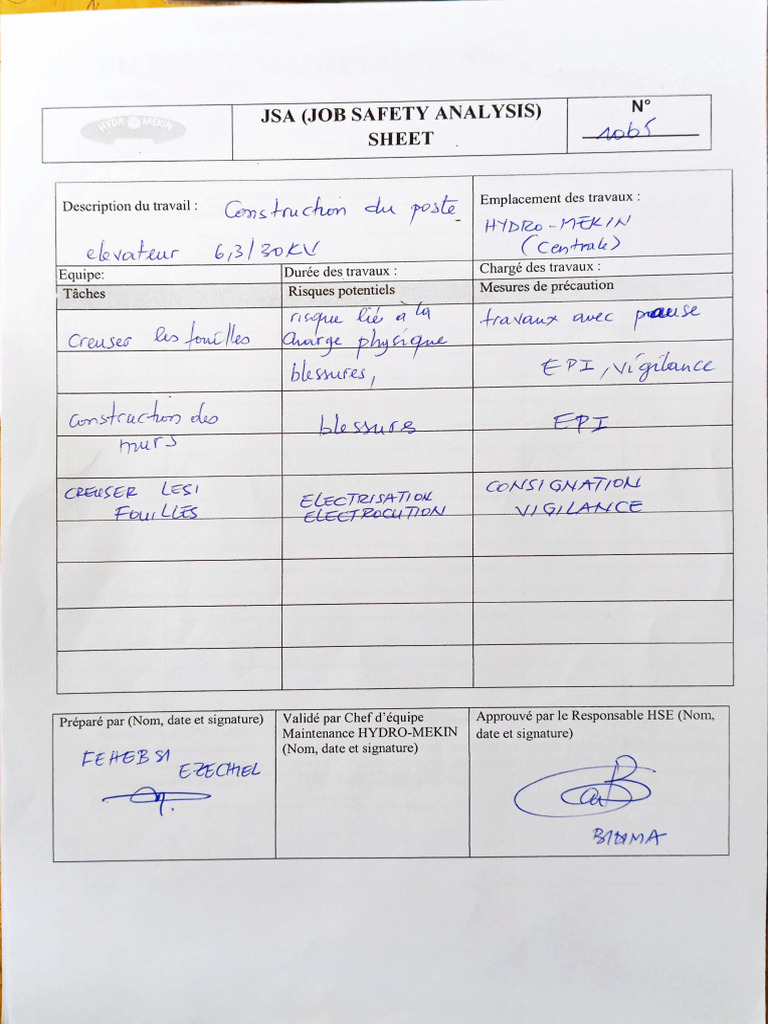 HYDRO MEKIN
JSA (JOB SAFETY ANALYSIS)
SHEET
N°
10b5
Description du travail : Construction du poste
elevateur 6,3/30KV
Emplacement des travaux :
HYDRO-MEKIN
(Centrale)
Equipe:
Durée des travaux :
Chargé des travaux :
Tâches
Risques potentiels
Mesures de précaution
Creuser les fouilles
risque lié à la
charge physique
travaux avec pause
blessures,
EPI, vigilance
construction des
murs
blessures
EPI
CREUSER LES
FOUILLES
ELECTRISATION
ELECTROCUTION
CONSIGNATION
VIGILANCE
Préparé par (Nom, date et signature)
FEHEBSI
EZECHIEL
Validé par Chef d'équipe
Maintenance HYDRO-MEKIN
(Nom, date et signature)
Approuvé par le Responsable HSE (Nom,
date et signature)